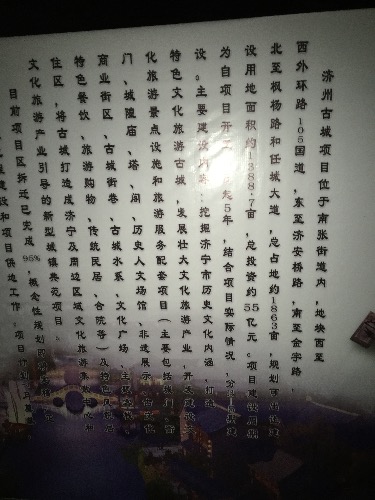 济州古城项目位于南张街道内，地块西至
西外环路105国道，东至济安桥路，南至金宇路，
北至枫杨路和任城大道，总占地约1863亩，规划可出让建
设用地面积约1388.7亩，总投资约55亿元。项目建设周期
为自项目开工之日起5年，结合项目实际情况，分
设。主要建设内容：挖掘济宁市历史文化内涵，打造
特色文化旅游古城，发展壮大文化旅游产业，开发建设文
化旅游景点设施和旅游服务配套项目（主要包括
门、城隍庙、塔、阁、历史人文场馆、非遗展示、
商业街区、古城街巷、古城水系、文化广场、主题
特色餐饮、旅游购物、传统民居、合院等）及特色
住区，将古城打造成济宁及周边区域文化旅游
文化旅游产业引导的新型城镇典范项目。
目前项目区拆迁已完成95%，概念性规划
建设和项目供地工作，项目